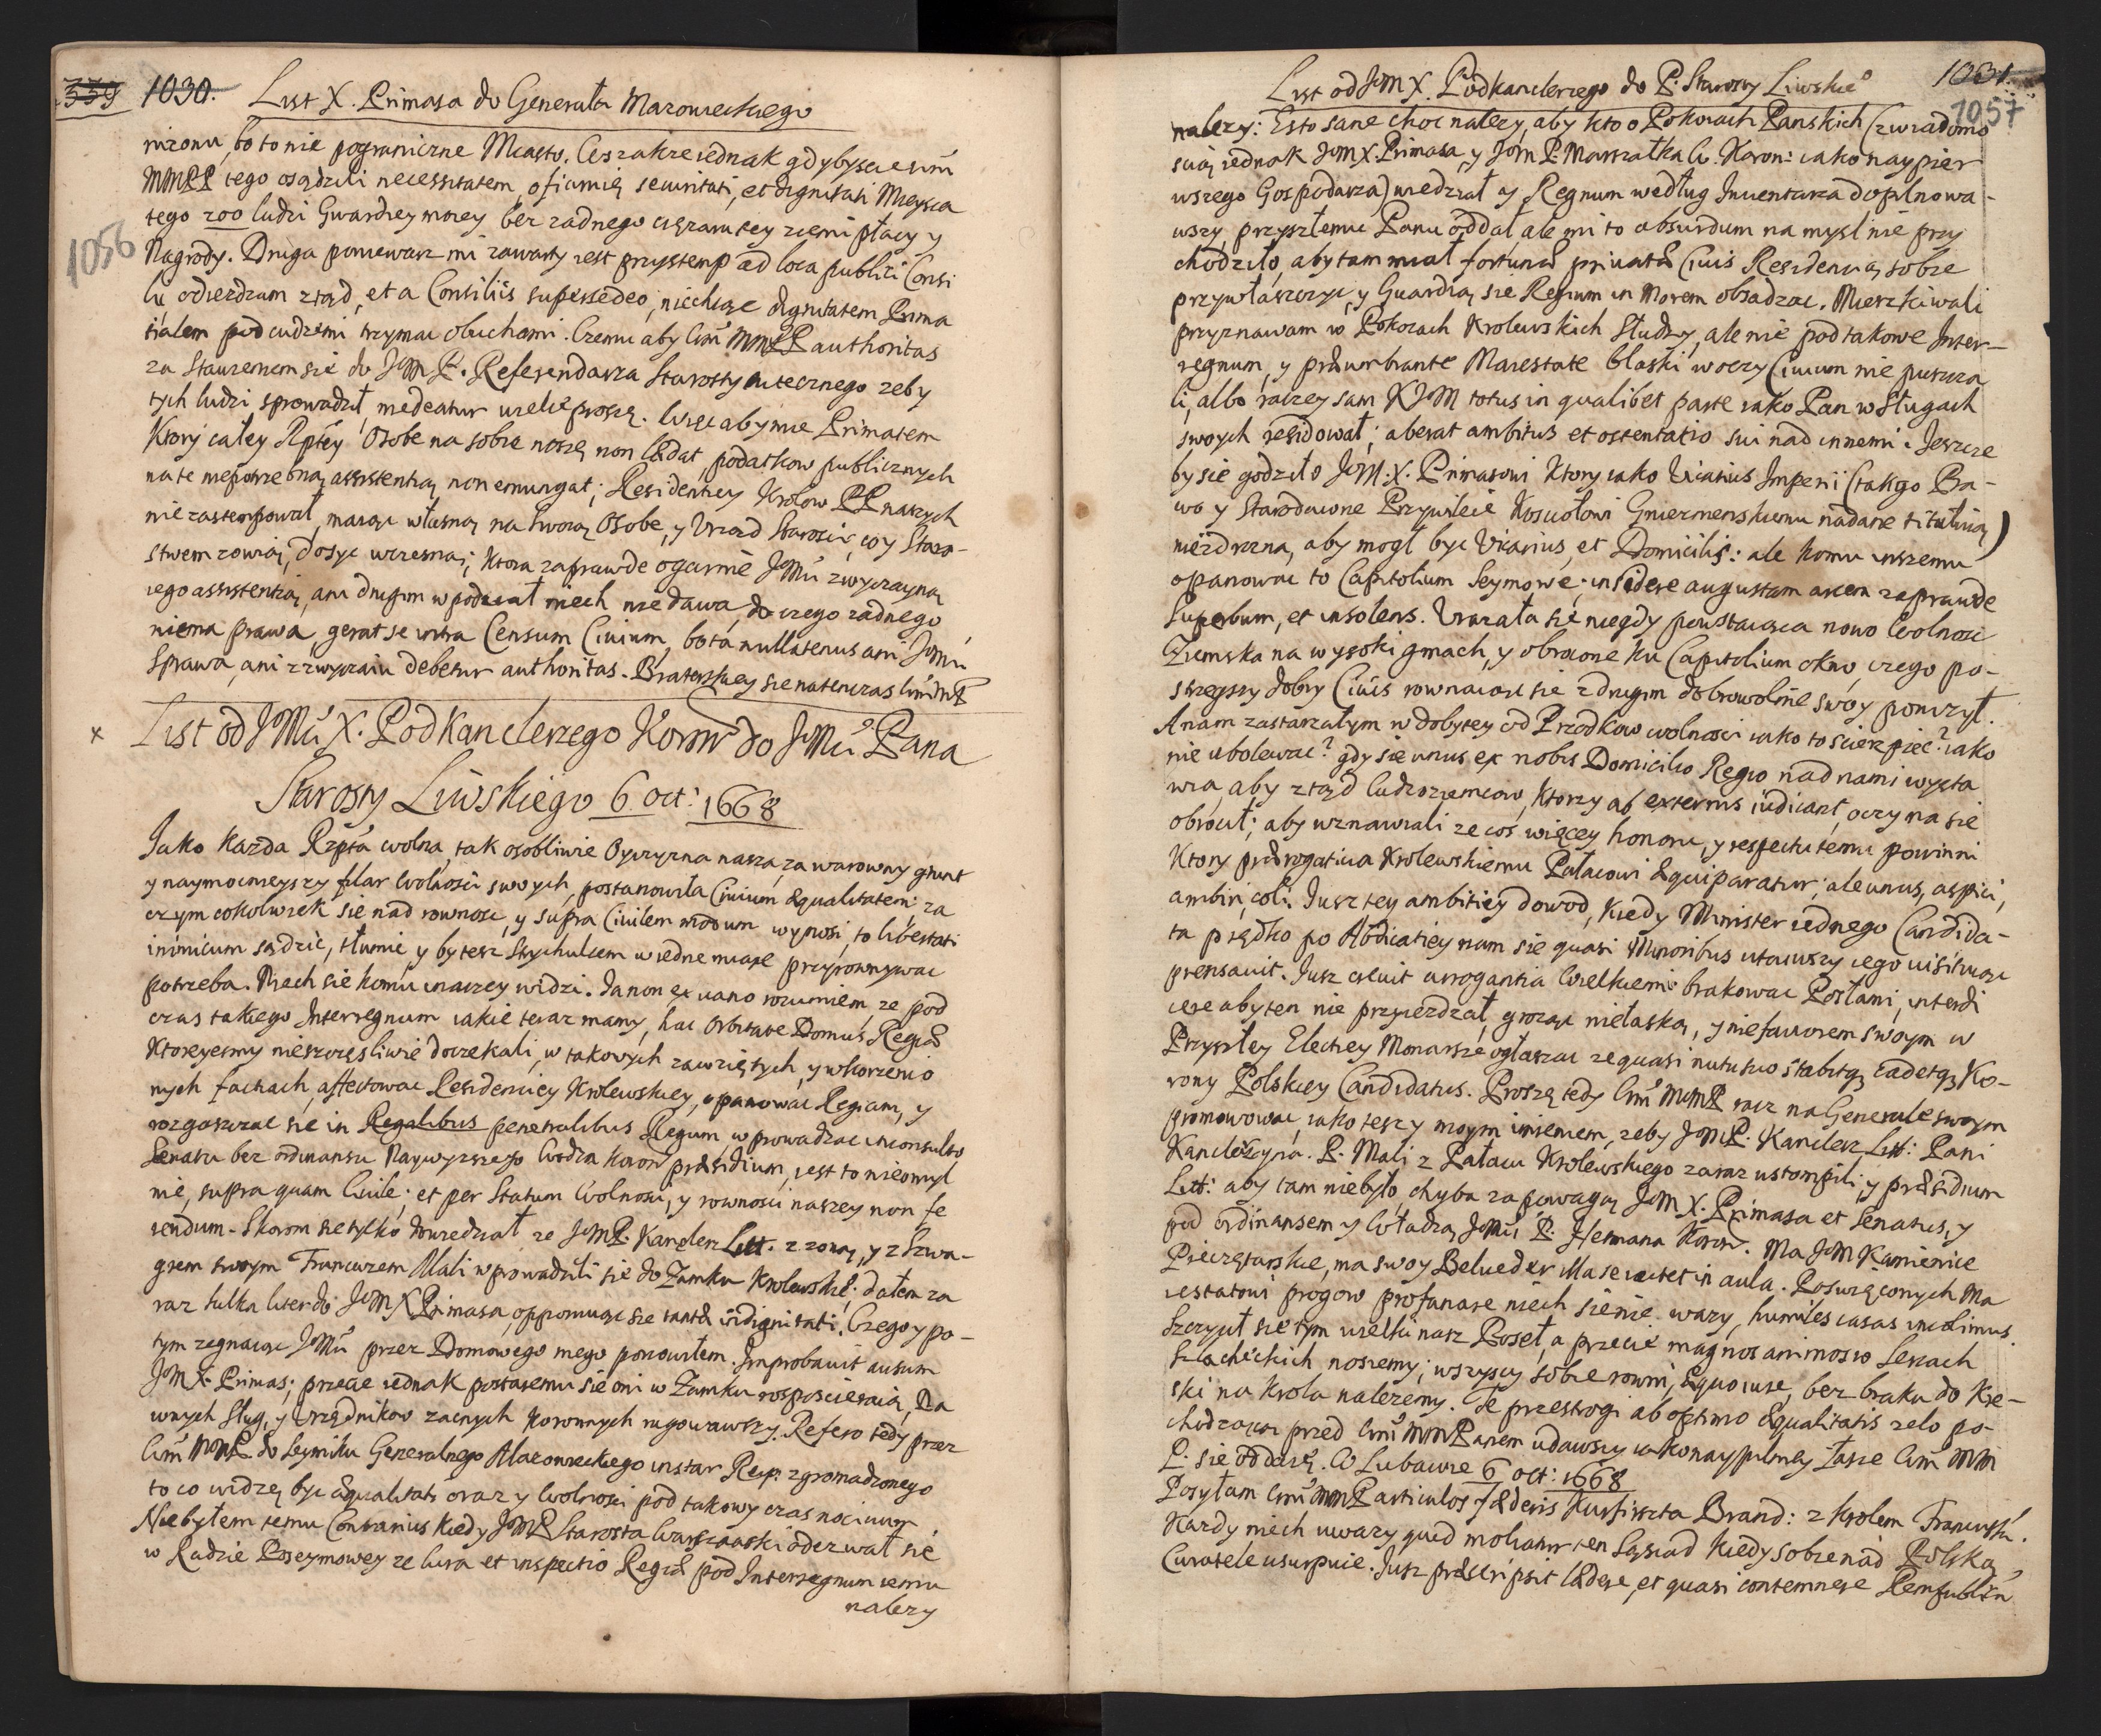 339 1030. List X. Primasa do Generała Mazowieckiego
1056
nizonu, bo to nie pograniczne Miasto. Wszakze iednak gdybyscie Wm̃
MMPP tego osądzili necessitatem, ofiaruię securitati, et dignitati Mieysca
tego 200 ludzi Gwardiey moiey bez zadnego cięzaru tey ziemi płacy y
Nagrody. Druga poniewasz mi zawarty iest przystemp ad loca publici Consi
lij odiezdzam ztąd, et a Consiliis supersedeo, niechcąc dignitatem Prima
tialem pod cudzemi trzymac obuchami. Czemu aby Wm̃ MMPP authoritas
za stawieniem się do JeM P. Referendarza Starosty tutecznego zeby
tych ludzi sprowadził, medeatur wielce proszę. Więc aby mie Primasem
Ktory całey Rptey Osobe na sobie noszę non lædat, podatkow publicznych
na te niepotrzebną assistentią non emungat; Residentiey Krolow PP naszych
nie zastempował, maiąc własną na swoią Osobe, y Urząd Starosci, co y Staro-
stwem zowią, dosyc wczesną; ktora zaprawde ogarnie JeMci zwyczayną
iego assistentią, ani drugim w podział niech nie dawa, do czego zadnego
niema prawa, gerat se intra Censum Civium, bo ta nullatenus ani JeMci
Sprawa, ani z zwyczaiu debetur authoritas. Braterskiey sie natenczas Wm̃ MP
× List od JeMci X. Podkanclerzego Koron: do JeMci Pana
Starosty Liwskiego 6 Oct: 1668
Jako Kazda Rzpta wolna, tak osobliwie Oyczyzna nasza, za warowny grunt
y naymocnieyszy filar Wolnosci swoych, postanowiła Civium æqualitatem: za
czym cokolwiek sie nad rownosc, y supra Civilem modum wynosi, to libertati
inimicum sądzic, tłumic, y by tesz Strychulcem w iedne miare przyrownywac
potrzeba. Niech sie komu inaczey widzi. Ja non ex vano rozumiem, ze pod
czas takiego Interregnum iakie teraz mamy, hac Orbitate Domus Regiæ
Ktoreyesmy nieszczęsliwie doczekali, w takowych zawziętych, y wkorzenio
nych factiach, affectowac Residenciey Krolewskiey, opanowac Regiam, y
rozgaszczac sie in Regalibus penetralibus Regum, wprowadzac inconsulto
Senatu bez ordinansu Naywyzszego Wodza Koron præsidium, iest to nieomyl
nie, supra quam Civile; et per Statum Wolnosci, y rownosci naszey non fe
rendum. Skorom sie tylko dowiedział ze JeMP. Kanclerz Litt. z zoną, y z Szwa-
grem swoym Francuzem Mali wprowadzili się do Zamku Krolewskie: dałem za
raz kulka liter do JeM X Primasa, opponuiąc sie tantæ indignitati. Czego y po-
tym zegnaiąc JeMci przez Domowego mego ponowiłem. Improbavit ausum
JeM X. Primas; przecie iednak postaremu sie oni w Zamku rosposcieraią, Da
wnych Sług, y Urzędnikow zacnych Koronnych rugowawszy. Refero tedy przez
Wm̃ MMP do Seymiku Generalnego Mazowieckiego instar Reip: zgromadzonego
to co widzę byc æqualitati oraz y Wolnosci pod takowy czas nocivum.
Niebyłem temu Contrarius kiedy JeMP Starosta Warszawski odezwał sie
w Radzie Poseymowey ze Cura et inspectio Regiæ pod Interregnum iemu
nalezy
List od JeM X. Podkanclerzego do P. Starosty Liwskie° 1031.
1057
nalezy: Esto sane choc nalezy, aby kto o Pokoiach Panskich (zwiadomo
scią iednak JeM X. Primasa, y JeM P. Marszałka W. Koron: iako naypier
wszego Gospodarza) wiedział, y Regnum według Inwentarza dopilnowa-
wszy, przyszłemu Panu oddał, ale mi to absurdum na mysl nie przy
chodziło, aby tam miał fortunæ privatæ Civis Residencią sobie
przywłaszczyc, y Guardią sie Regium in Morem obsadzac. Mieszkiwali
przyznawam w Pokoiach Krolewskich Słudzy, ale nie pod takowe Inter-
regnum, y præumbrante Maiestate blaski w oczy Civium nie puszcza
li, albo raczey sam KJM totus in qualibet parte iako Pan w Sługach
swoych residował; aberat ambitus et ostentatio sui nad innemi. Jeszcze
by sie godziło JeM. X. Primasowi Ktory iako Vicarius Imperii (tak go Pra-
wo y Starodawne Przywileie Kosciołowi Gnieznenskiemu nadane titułuią)
nieżdrozna, aby mogł byc Vicarius, et Domicilij: ale komu inszemu
opanowac to Capitolium Seymowe; insidere augustam arcem zaprawde
Superbum, et insolens. Urazała sie niegdy powstaiąca nowo Wolnosc
Ziemska na wysoki gmach, y obrocone ku Capitolium okno, czego po-
strzegszy dobry Civis rownaiąc się z drugim dobrowolnie swoy ponizył.
A nam zastarzałym w dobytey od Przodkow wolnosci iako to scierpiec? iako
nie ubolewac? gdy sie unus ex nobis Domicilio Regio nad nami wysta
wia, aby ztąd Cudzoziemcow, Ktorzy ab externis iudicant, oczy na sie
obrocił; aby uznawali ze cos więcey honoru, y respectu temu powinni
Ktory prærogativa Krolewskiemu Pałacowi æquiparatur; ale unus, aspici,
ambiri, coli. Jusz tey ambitiey dowod, kiedy Minister iednego Candida-
ta prędko po Abdicatiey nam sie quasi Minoribus utaiwszy iego visituiąc
prensavit. Jusz crevit arrogantia Wielkiemi brakowac Posłami, interdi
cere aby ten nie przyiezdzał, groząc niełaską, y niefaworem swoym w
Przyszłey Electiey Monarsze ogłaszac ze quasi nutu suo stabitq́ʒ cadetq́ʒ Ko-
rony Polskiey Candidatus. Proszę tedy Wm̃ MMP racz na Generale swoym
promowowac, iako tesz y moym imieniem, zeby JeMP. Kanclerz Litt: Pani
Kanclerzyna. P. Mali z Pałacu Krolewskiego zaraz ustompili, y præsidium
Litt: aby tam niebyło, chyba za powagą JeM X. Primasa et Senatus, y
pod ordinansem y Władzą JeMci P. Hetmana Koron. Ma JeM Kamienice
Pieczętarskie, ma swoy Belueder Maieutet in aula. Poswięconych Ma
iestatowi progow profanare niech sie nie wazy, humiles casas incolimus
Szczycił sie tym wielki nasz Poseł, a przecie magnos animos w Sercach
Szlacheckich nosiemy; wszyscy sobie rowni, æquo iure, bez braku do Kre-
ski na krola nalezemy. Te przestrogi ab optimo æqualitatis zelo po-
chodzącą przed Wm̃ MMPanem udawszy iakonaypilniey Łasce Wm̃ MM
P. sie oddaię. W Lubawie 6 Oct: 1668
Posyłam Wm̃ MMP articulos fæderis Kurfirszta Brand: z Krolem Francuskĩ.
Kazdy niech uwazy quid moliatur ten Sąsiad kiedy sobie nad Polską
Curatele usurpuie. Jusz præscripsit lædere, et quasi contemnere Rempublicã